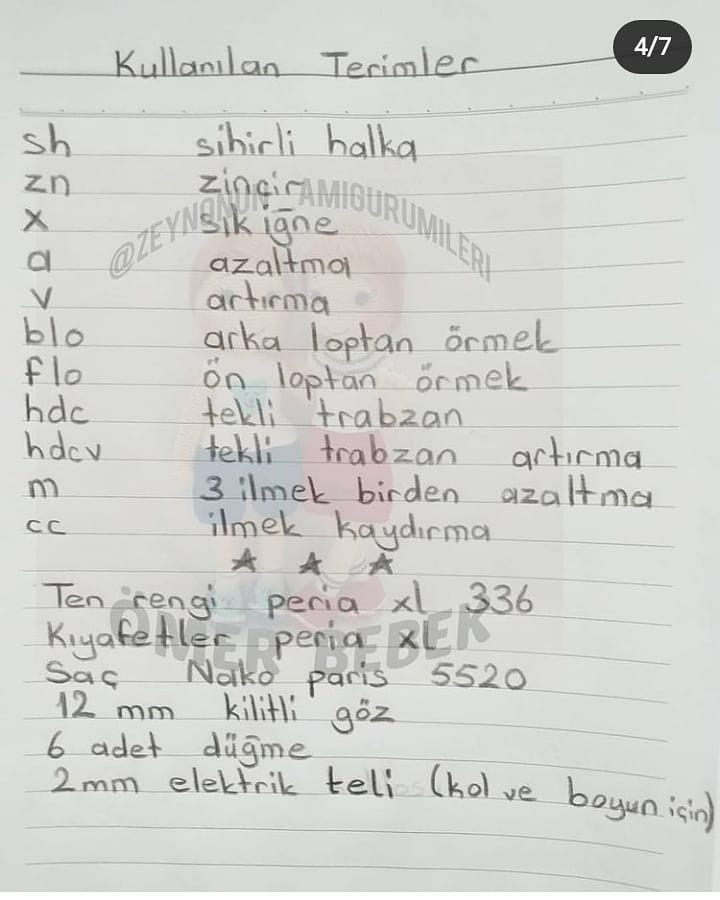 4/7
Kullanılan Terimler
sh sihirli halka
zn zincir
x sık iğne
a azaltma
v artırma
blo arka loptan örmek
flo ön loptan örmek
hdc tekli trabzan
hdcv tekli trabzan artırma
m 3 ilmek birden azaltma
cc ilmek kaydırma
@ZEYNONUN AMIGURUMILERI
Ten rengi peria xl 336
Kıyafetler peria xl
Saç Nako paris 5520
12 mm kilitli göz
6 adet düğme
2mm elektrik teli (kol ve boyun için)
ÖMER BEBEK